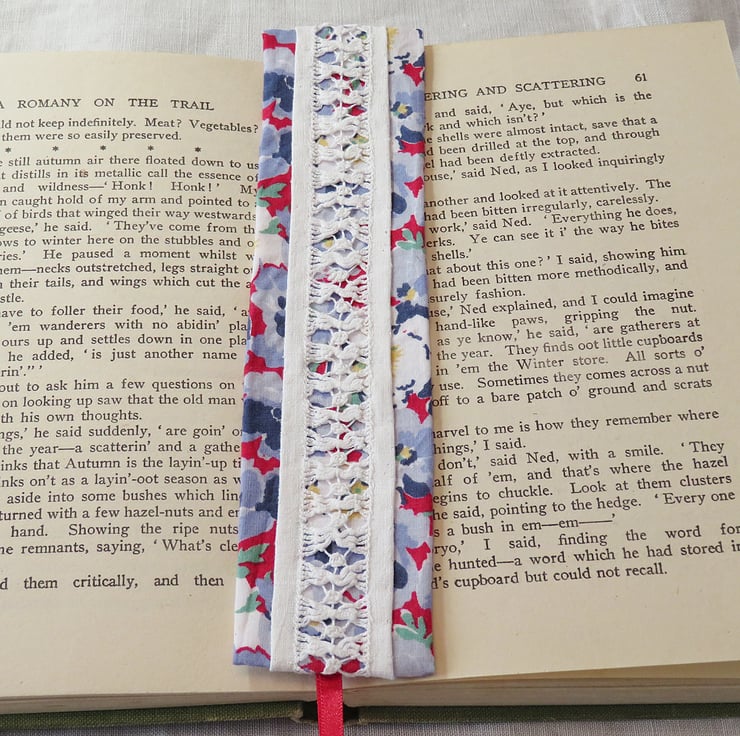 A ROMANY ON THE TRAIL
not keep indefinitely. Meat? Vegetables?
them were so easily preserved.
* * * * *
still autumn air there floated down to us
at distills in its metallic call the essence of
and wildness—‘Honk! Honk!’ My
n caught hold of my arm and pointed to
of birds that winged their way westwards
geese,’ he said. ‘They've come from th
to winter here on the stubbles and o
He paused a moment whilst w
—necks outstretched, legs straight o
their tails, and wings which cut the a
to foller their food,’ he said, ‘a
'em wanderers with no abidin' pla
ours up and settles down in one pla
he added, ‘is just another name
out to ask him a few questions on
on looking up saw that the old man
th his own thoughts.
he said suddenly, ‘are goin' o
the year—a scatterin' and a gathe
inks that Autumn is the layin'-up ti
on't as a layin'-oot season as w
aside into some bushes which lin
turned with a few hazel-nuts and
hand. Showing the ripe nuts
remnants, saying, ‘What's cle
d them critically, and then
ERING AND SCATTERING 61
and said, ‘Aye, but which is the
and which isn't?’
shells were almost intact, save that a
been drilled at the top, and through
had been deftly extracted.
said Ned, as I looked inquiringly
another and looked at it attentively. The
had been bitten irregularly, carelessly.
work,’ said Ned. ‘Everything he does,
Ye can see it i' the way he bites
shells.’
about this one?’ I said, showing him
had been bitten more methodically, and
fashion.
Ned explained, and I could imagine
hand-like paws, gripping the nut.
as ye know,’ he said, ‘are gatherers at
the year. They finds oot little cupboards
in 'em the Winter store. All sorts o'
use. Sometimes they comes across a nut
off to a bare patch o' ground and scrats
marvel to me is how they remember where
things,’ I said.
don't,’ said Ned, with a smile. ‘They
half of 'em, and that's where the hazel
begins to chuckle. Look at them clusters
he said, pointing to the hedge. ‘Every one
s a bush in em—em——’
I said, finding the word for
he hunted—a word which he had stored in
cupboard but could not recall.